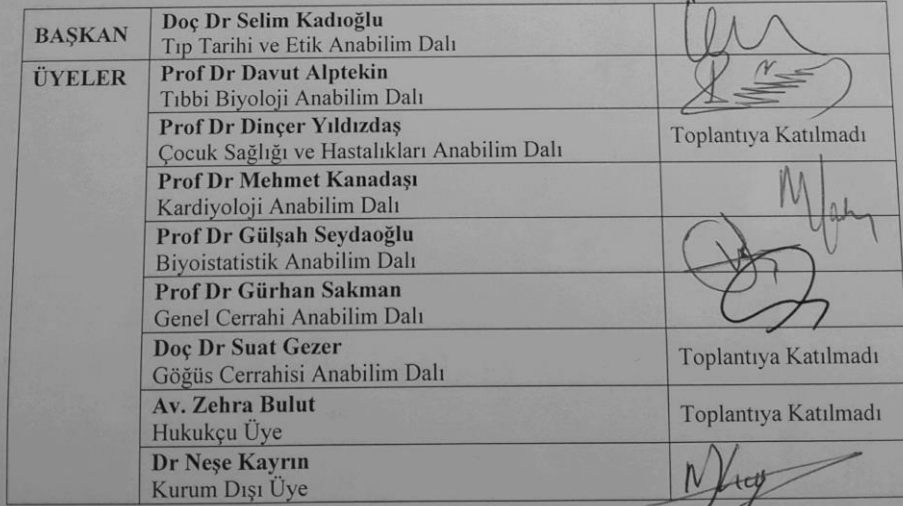 BAŞKAN
Doç Dr Selim Kadıoğlu
Tıp Tarihi ve Etik Anabilim Dalı
ÜYELER
Prof Dr Davut Alptekin
Tıbbi Biyoloji Anabilim Dalı
Prof Dr Dinçer Yıldızdaş
Çocuk Sağlığı ve Hastalıkları Anabilim Dalı
Toplantıya Katılmadı
Prof Dr Mehmet Kanadaşı
Kardiyoloji Anabilim Dalı
Prof Dr Gülşah Seydaoğlu
Biyoistatistik Anabilim Dalı
Prof Dr Gürhan Sakman
Genel Cerrahi Anabilim Dalı
Doç Dr Suat Gezer
Göğüs Cerrahisi Anabilim Dalı
Toplantıya Katılmadı
Av. Zehra Bulut
Hukukçu Üye
Toplantıya Katılmadı
Dr Neşe Kayrın
Kurum Dışı Üye